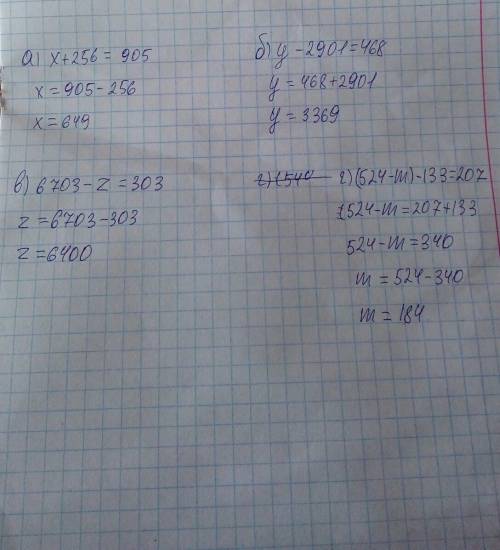 а) x+256=905
x=905-256
x=649
б) y-2901=468
y=468+2901
y=3369
в) 6703-z=303
z=6703-303
z=6400
г) (524-m)-133=207
524-m=207+133
524-m=340
m=524-340
m=184